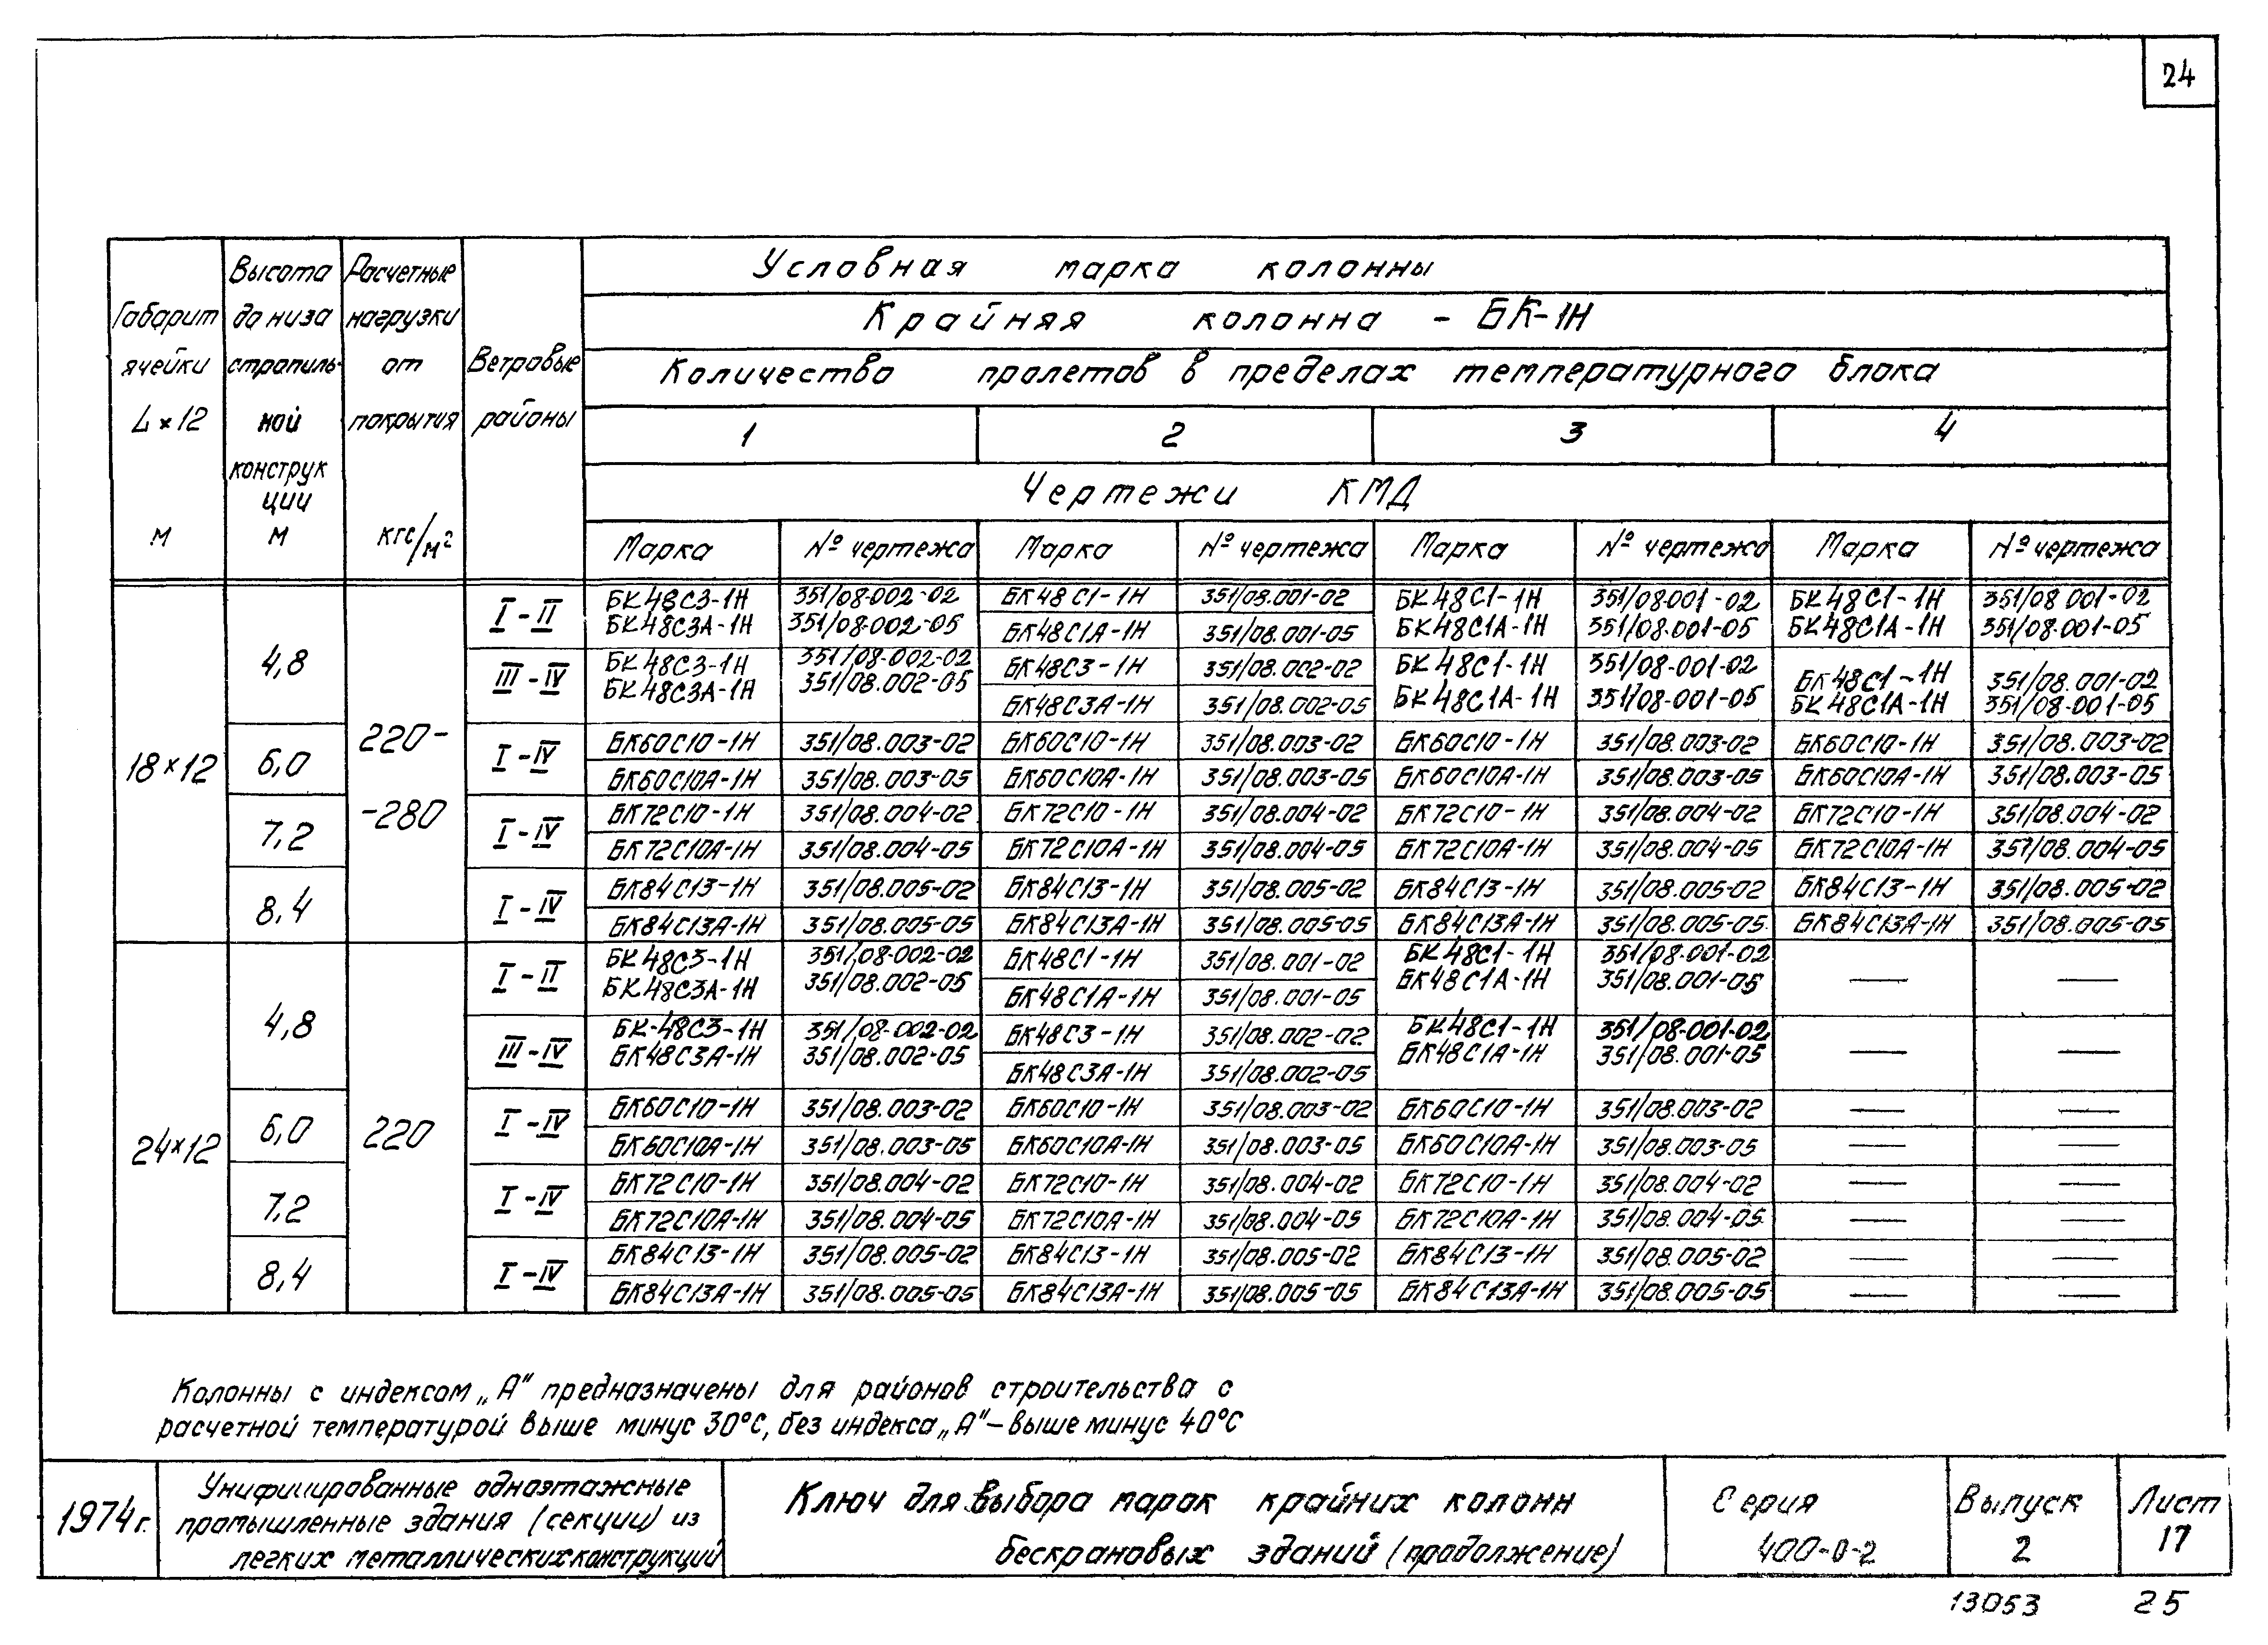 24
Габарит ячейки L×12 м
Высота до низа стропиль- ной конструк ции м
Расчетные нагрузки от покрытия кгс/м²
Ветровые районы
Условная марка колонны
Крайняя колонна - БК-1Н
Количество пролетов в пределах температурного блока
1 2 3 4
Чертежи КМД
Марка № чертежа Марка № чертежа Марка № чертежа Марка № чертежа
18×12 220- -280
4,8
I-II
БК48С3-1Н 351/08.002-02 БК48С1-1Н 351/08.001-02 БК48С1-1Н 351/08.001-02 БК48С1-1Н 351/08 001-02
БК48С3А-1Н 351/08.002-05 БК48С1А-1Н 351/08.001-05 БК48С1А-1Н 351/08.001-05 БК48С1А-1Н 351/08.001-05
III-IV
БК48С3-1Н 351/08.002-02 БК48С3-1Н 351/08.002-02 БК48С1-1Н 351/08-001-02 БК48С1-1Н 351/08.001-02
БК48С3А-1Н 351/08.002-05 БК48С3А-1Н 351/08.002-05 БК48С1А-1Н 351/08-001-05 БК48С1А-1Н 351/08-001-05
6,0 I-IV
БК60С10-1Н 351/08.003-02 БК60С10-1Н 351/08.003-02 БК60С10-1Н 351/08.003-02 БК60С10-1Н 351/08.003-02
БК60С10А-1Н 351/08.003-05 БК60С10А-1Н 351/08.003-05 БК60С10А-1Н 351/08.003-05 БК60С10А-1Н 351/08.003-05
7,2 I-IV
БК72С10-1Н 351/08.004-02 БК72С10-1Н 351/08.004-02 БК72С10-1Н 351/08.004-02 БК72С10-1Н 351/08.004-02
БК72С10А-1Н 351/08.004-05 БК72С10А-1Н 351/08.004-05 БК72С10А-1Н 351/08.004-05 БК72С10А-1Н 351/08.004-05
8,4 I-IV
БК84С13-1Н 351/08.005-02 БК84С13-1Н 351/08.005-02 БК84С13-1Н 351/08.005-02 БК84С13-1Н 351/08.005-02
БК84С13А-1Н 351/08.005-05 БК84С13А-1Н 351/08.005-05 БК84С13А-1Н 351/08.005-05 БК84С13А-1Н 351/08.005-05
24×12 220
4,8
I-II
БК48С3-1Н 351/08-002-02 БК48С1-1Н 351/08.001-02 БК48С1-1Н 351/08.001-02 — —
БК48С3А-1Н 351/08.002-05 БК48С1А-1Н 351/08.001-05 БК48С1А-1Н 351/08.001-05
III-IV
БК-48С3-1Н 351/08-002-02 БК48С3-1Н 351/08.002-02 БК48С1-1Н 351/08-001-02 — —
БК48С3А-1Н 351/08.002-05 БК48С3А-1Н 351/08.002-05 БК48С1А-1Н 351/08.001-05
6,0 I-IV
БК60С10-1Н 351/08.003-02 БК60С10-1Н 351/08.003-02 БК60С10-1Н 351/08.003-02 — —
БК60С10А-1Н 351/08.003-05 БК60С10А-1Н 351/08.003-05 БК60С10А-1Н 351/08.003-05 — —
7,2 I-IV
БК72С10-1Н 351/08.004-02 БК72С10-1Н 351/08.004-02 БК72С10-1Н 351/08.004-02 — —
БК72С10А-1Н 351/08.004-05 БК72С10А-1Н 351/08.004-05 БК72С10А-1Н 351/08.004-05 — —
8,4 I-IV
БК84С13-1Н 351/08.005-02 БК84С13-1Н 351/08.005-02 БК84С13-1Н 351/08.005-02 — —
БК84С13А-1Н 351/08.005-05 БК84С13А-1Н 351/08.005-05 БК84С13А-1Н 351/08.005-05 — —
Колонны с индексом „А" предназначены для районов строительства с
расчетной температурой выше минус 30°С, без индекса „А"-выше минус 40°С
1974г.
Унифицированные одноэтажные
промышленные здания (секции) из
легких металлических конструкций
Ключ для выбора марок крайних колонн
бескрановых зданий (продолжение)
Серия
400-0-2
Выпуск
2
Лист
17
13053 25